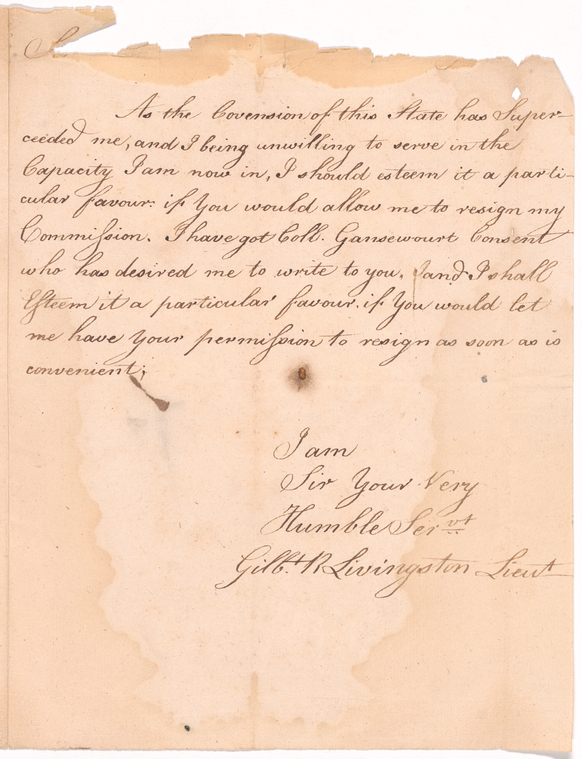 S
As the Covension of this State has Super-
ceeded me, and I being unwilling to serve in the
Capacity I am now in, I should esteem it a parti-
cular favour: if You would allow me to resign my
Commission. I have got Coll. Gansewourt Consent
who has desired me to write to you, and I shall
Esteem it a particular favour. if You would let
me have Your permission to resign as soon as is
convenient;
I am
Sir Your Very
Humble Servt
Gilbt R Livingston Lieut